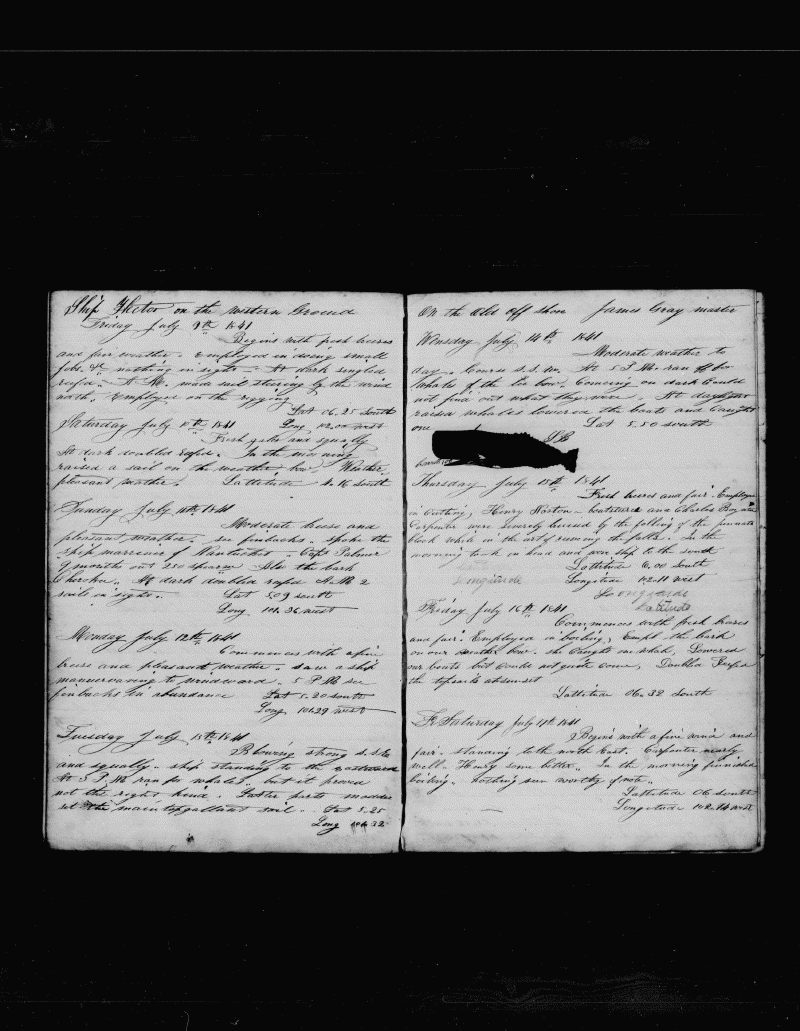 Ship Hector on the western Ground
Friday July 9th 1841
Begins with fresh breeses
and fair weather. Employed in doing small
jobs. &c nothing in sight. At dark singled
reefs. A. M. made sail steering by the wind
north. Employed on the rigging
Lat 06.25 South
Saturday July 10th 1841 Long 102.00 west
Fresh gales and squally
At dark doubled reefs. In the morning
raised a sail on the weather bow.
pleasant weather. Lattitude 4.16 south
Sunday July 11th 1841
Moderate breese and
pleasant weather. see finbacks. spoke the
ship of Nantucket. Capt Palmer
9 months out 250 sperm Also the bark
Cherokee. At dark doubled reefs A.M 2
sails in sight. Lat 5.09 south
Long 101.36 west
Monday July 12th 1841
Commences with a fine
breese and pleasant weather. saw a ship
to windward. 5 P M see
finbacks in abundance Lat 5.20 south
Long 101.29 west
Tuesday July 13th 1841
Blowing strong S.S.E
and squally. ship standing to the eastward
At 3 P M ran for whales. but it proved
not the right kind. Latter parts modder
set the main topgallant sail. Lat 5.25
Long 101.32
On the Old off shore James Gray master
Wensday July 14th 1841
Moderate weather to
day. Course S.S.W. At 5 P.M. ran off for
whales of the lee bow. Comeing on dark Could
not find out what they were. At daylight
raised whales lowered the boats and Caught
one Lat 5.50 south
LB
Thursday July 15th 1841
Fresh breses and fair. Employed
in Cutting, Henry Norton boatsteere and Charles
Carpenter were severly bruised by the falling of the
block while in the act of reeving the falls. In the
morning took in head and wore ship to the south
Lattitude 6.00 South
Longitude Longitude 102.11 west
Longitude
Latitude
Friday July 16th 1841
Commences with fresh breses
and fair. Employed in boiling, the bark
on our weather bow. she Caught one whale, Lowered
our boats but could not quite come, Doubled Reefed
the topsails at sunset
Lattitude 06.32 South
Saturday July 17th 1841
Begins with a fine wind and
fair. standing to the north East. Carpenter nearly
well. Henry some better. In the morning finished
boiling. nothing seen worthy of note.
Lattitude 06 south
Longitude 102.14 west